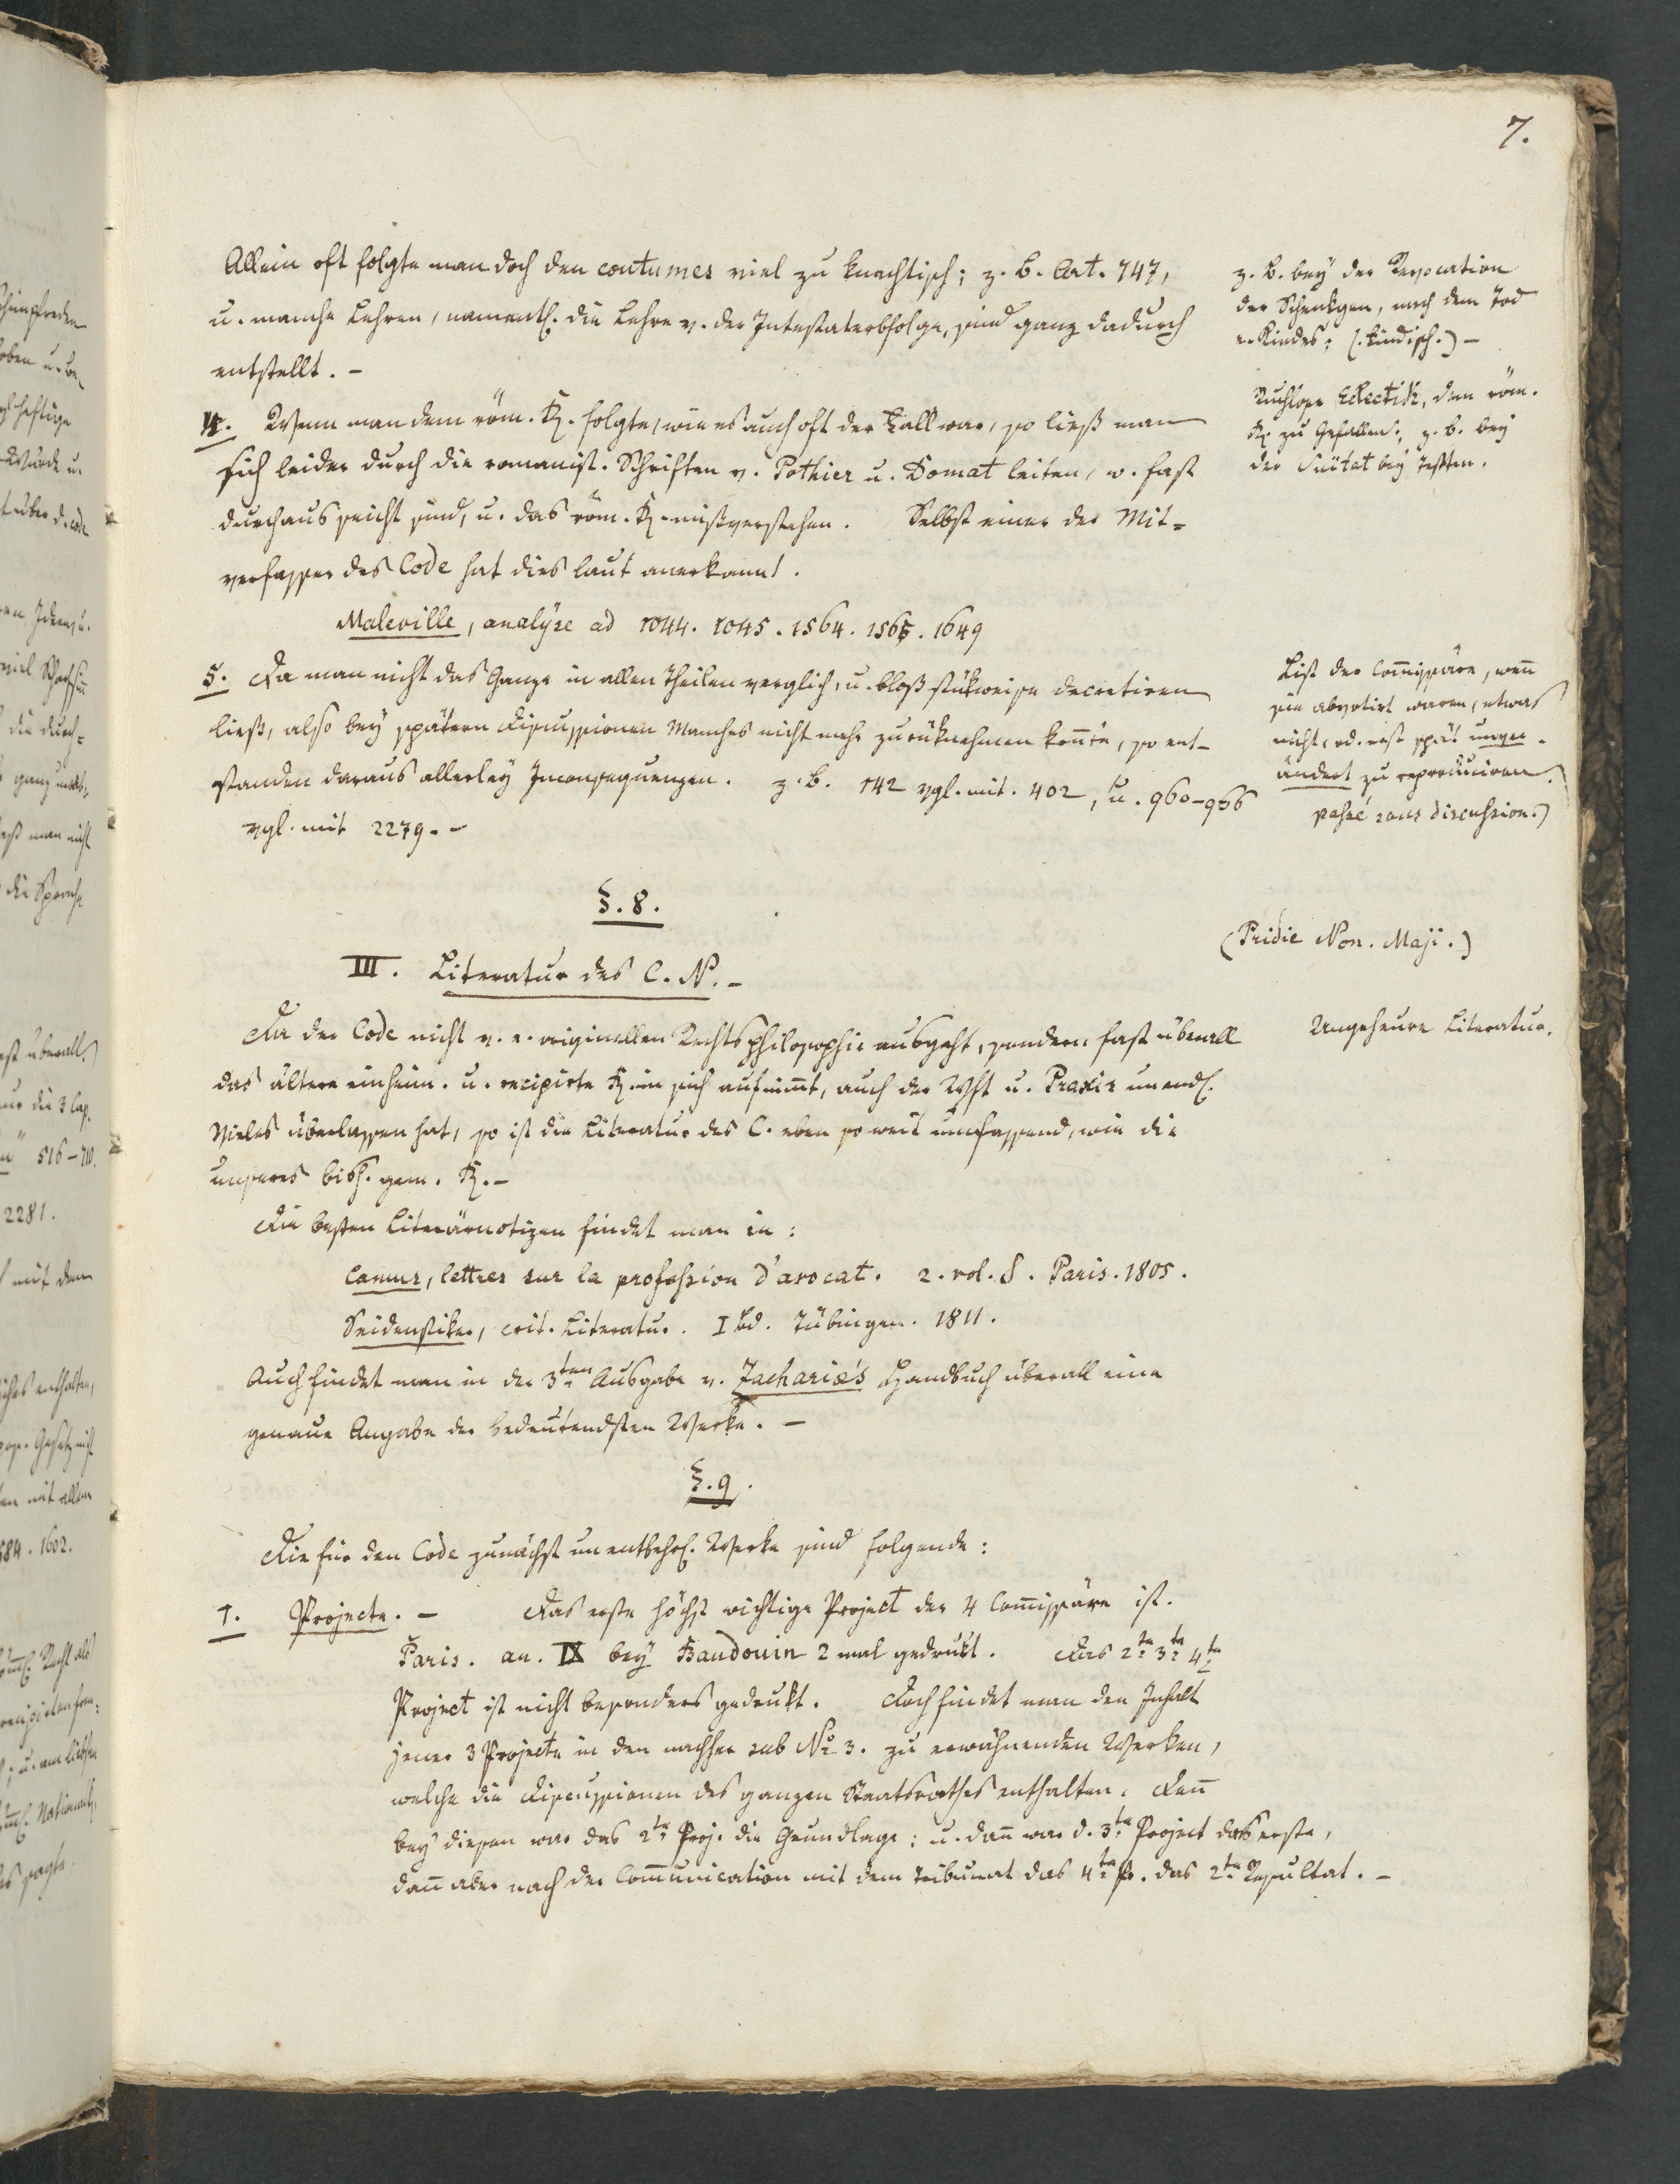 7.
Allein oft folgte man doch den coutumes viel zu knechtisch; z. B. Art. 747,
u. manche Lehren, namentl. die Lehre v. der Intestaterbfolge, sind ganz dadurch
entstellt. –
z. B. bey der Revocation
der Schenkgen, nach dem Tod
e. Kindes; (kindisch.) –
4. Wenn man dem röm. R. folgte, wie es auch oft der Fall war, so ließ man
sich leider durch die romanist. Schriften v. Pothier u. Domat leiten, w. fast
durchaus seicht sind, u. das röm. R. mißverstehen. Selbst einer der Mit=
verfasser des Code hat dies laut anerkannt.
Maleville, analyse ad 1044. 1045. 1564. 1565. 1649
Eclectik, dem röm.
R. zu Gefallen; z. B. bey
der bey Testten.
5. Da man nicht das Ganze in allen Theilen verglich, u. bloß stükweise decretiren
ließ, also bey spätern Discussionen Manches nicht mehr zurüknehmen konnte, so ent-
standen daraus allerley Inconsequenzen. z. B. 142 vgl. mit. 402, u. 960–966
vgl. mit 2279. –
List der Commissäre, wenn
sie abvotirt waren, etwas
nicht, od. erst spät unver-
ändert zu reproduciren.
passé sans discussion.)
§. 8.
(Pridie Non. Maji.)
III. Literatur des C. N. –
Da der Code nicht v. e. originellen Rechtsphilosophie ausgeht, sondern fast überall
das ältere einheim. u. recipirte R. in sich aufnimmt, auch der Wst u. Praxis unendl.
Vieles überlassen hat, so ist die Literatur des C. eben so weit umfassend, wie die
unseres bish. gem. R. –
Ungeheure Literatur.
Die besten Literärnotizen findet man in:
Camus, lettres sur la profession d'avocat. 2. vol. 8. Paris. 1805.
Seidenstiker, crit. Literatur. I Bd. Tübingen. 1811.
Auch findet man in der 3ten Ausgabe v. Zachariæ's Handbuch überall eine
genaue Angabe der bedeutendsten Werke. –
§. 9.
Die für den Code zunächst unentbehrl. Werke sind folgende:
1. Projecte. – Das erste höchst wichtige Project der 4 Commissäre ist.
Paris. an. IX bey Baudouin 2 mal gedrukt. Das 2te 3te 4te
Project ist nicht besonders gedrukt. Doch findet man den Inhalt
jener 3 Projecte in den nachher sub No 3. zu erwähnenden Werken,
welche die Discussionen des ganzen Staatsrathes enthalten. Denn
bey diesen war das 2te Proj. die Grundlage; u. dann war d. 3te Project das erste,
dann aber nach der Communication mit dem Tribunat das 4te Pr. das 2te Resultat. –